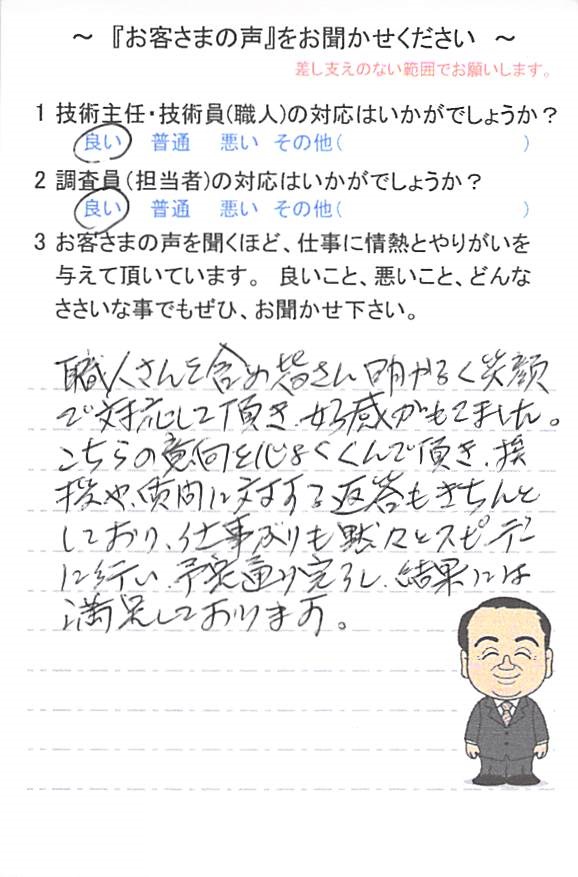 ～ 『お客さまの声』をお聞かせください ～
差し支えのない範囲でお願いします。
1 技術主任・技術員(職人)の対応はいかがでしょうか？
良い 普通 悪い その他( )
2 調査員(担当者)の対応はいかがでしょうか？
良い 普通 悪い その他( )
3 お客さまの声を聞くほど、仕事に情熱とやりがいを
与えて頂いています。 良いこと、悪いこと、どんな
ささいな事でもぜひ、お聞かせ下さい。
職人さんを含め皆さん明かるく笑顔
で対応して頂き、好感がもてました。
こちらの意向を心よくくんで頂き、挨
拶や、質問に対する返答もきちんと
しており、仕事ぶりも黙々とスピーデー
に行い、予定通り完了し、結果には
満足しております。